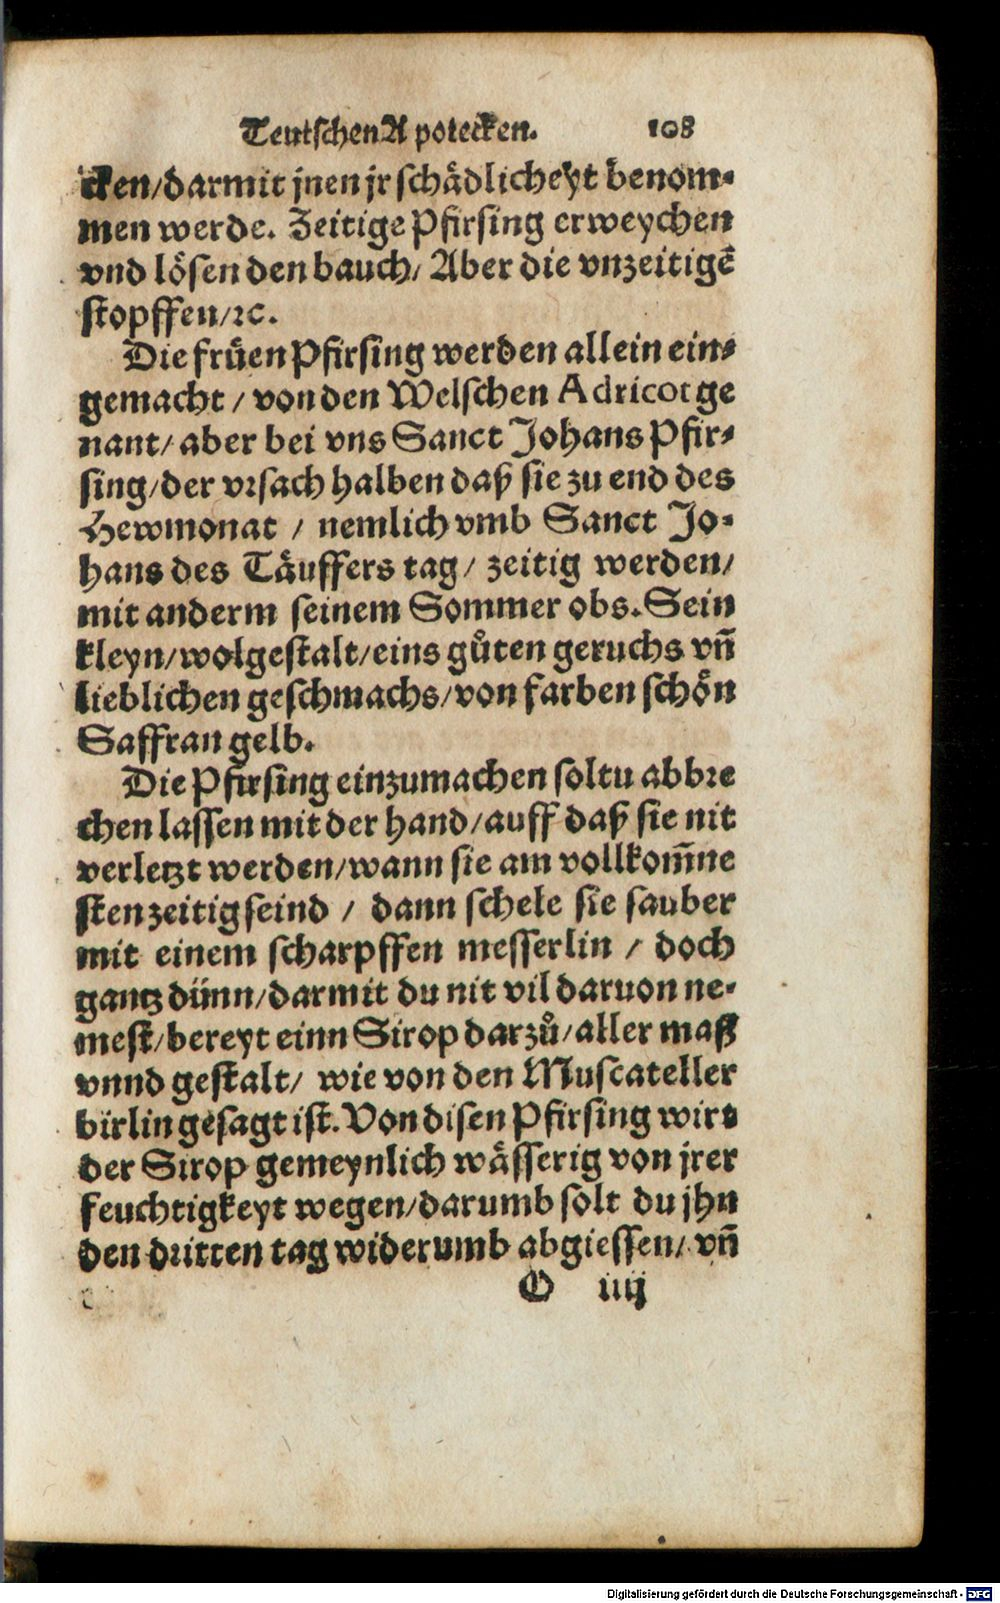 Teutschen Apotecken. 108
cken/darmit jnen jr schädlicheyt benom-
men werde. Zeitige Pfirsing erweychen
vnd lösen den bauch/ Aber die vnzeitigẽ
stopffen/ꝛc.
Die früen Pfirsing werden allein ein-
gemacht / von den Welschen Adricot ge
nant/ aber bei vns Sanct Johans Pfir-
sing/der vrsach halben daß sie zu end des
Hewmonat / nemlich vmb Sanct Jo-
hans des Täuffers tag/ zeitig werden/
mit anderm seinem Sommer obs. Sein
kleyn/wolgestalt/eins gůten geruchs vñ
lieblichen geschmachs/von farben schön
Saffran gelb.
Die Pfirsing einzumachen soltu abbre
chen lassen mit der hand/auff daß sie nit
verletzt werden/wann sie am vollkom̃ne
sten zeitig seind / dann schele sie sauber
mit einem scharpffen messerlin / doch
gantz dünn/darmit du nit vil daruon ne-
mest/bereyt einn Sirop darzů/aller maß
vnnd gestalt/ wie von den Muscateller
birlin gesagt ist. Von disen Pfirsing wirt
der Sirop gemeynlich wässerig von jrer
feuchtigkeyt wegen/darumb solt du jhn
den dritten tag widerumb abgiessen/ vñ
O iiij
Digitalisierung gefördert durch die Deutsche Forschungsgemeinschaft - DFG